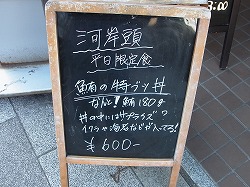 河岸頭
平日限定食
鮪の特ブツ丼
なんと!鮪180g
丼の中にはサプライズ?
イクラや海老などが入ってる!
¥600-
3:00